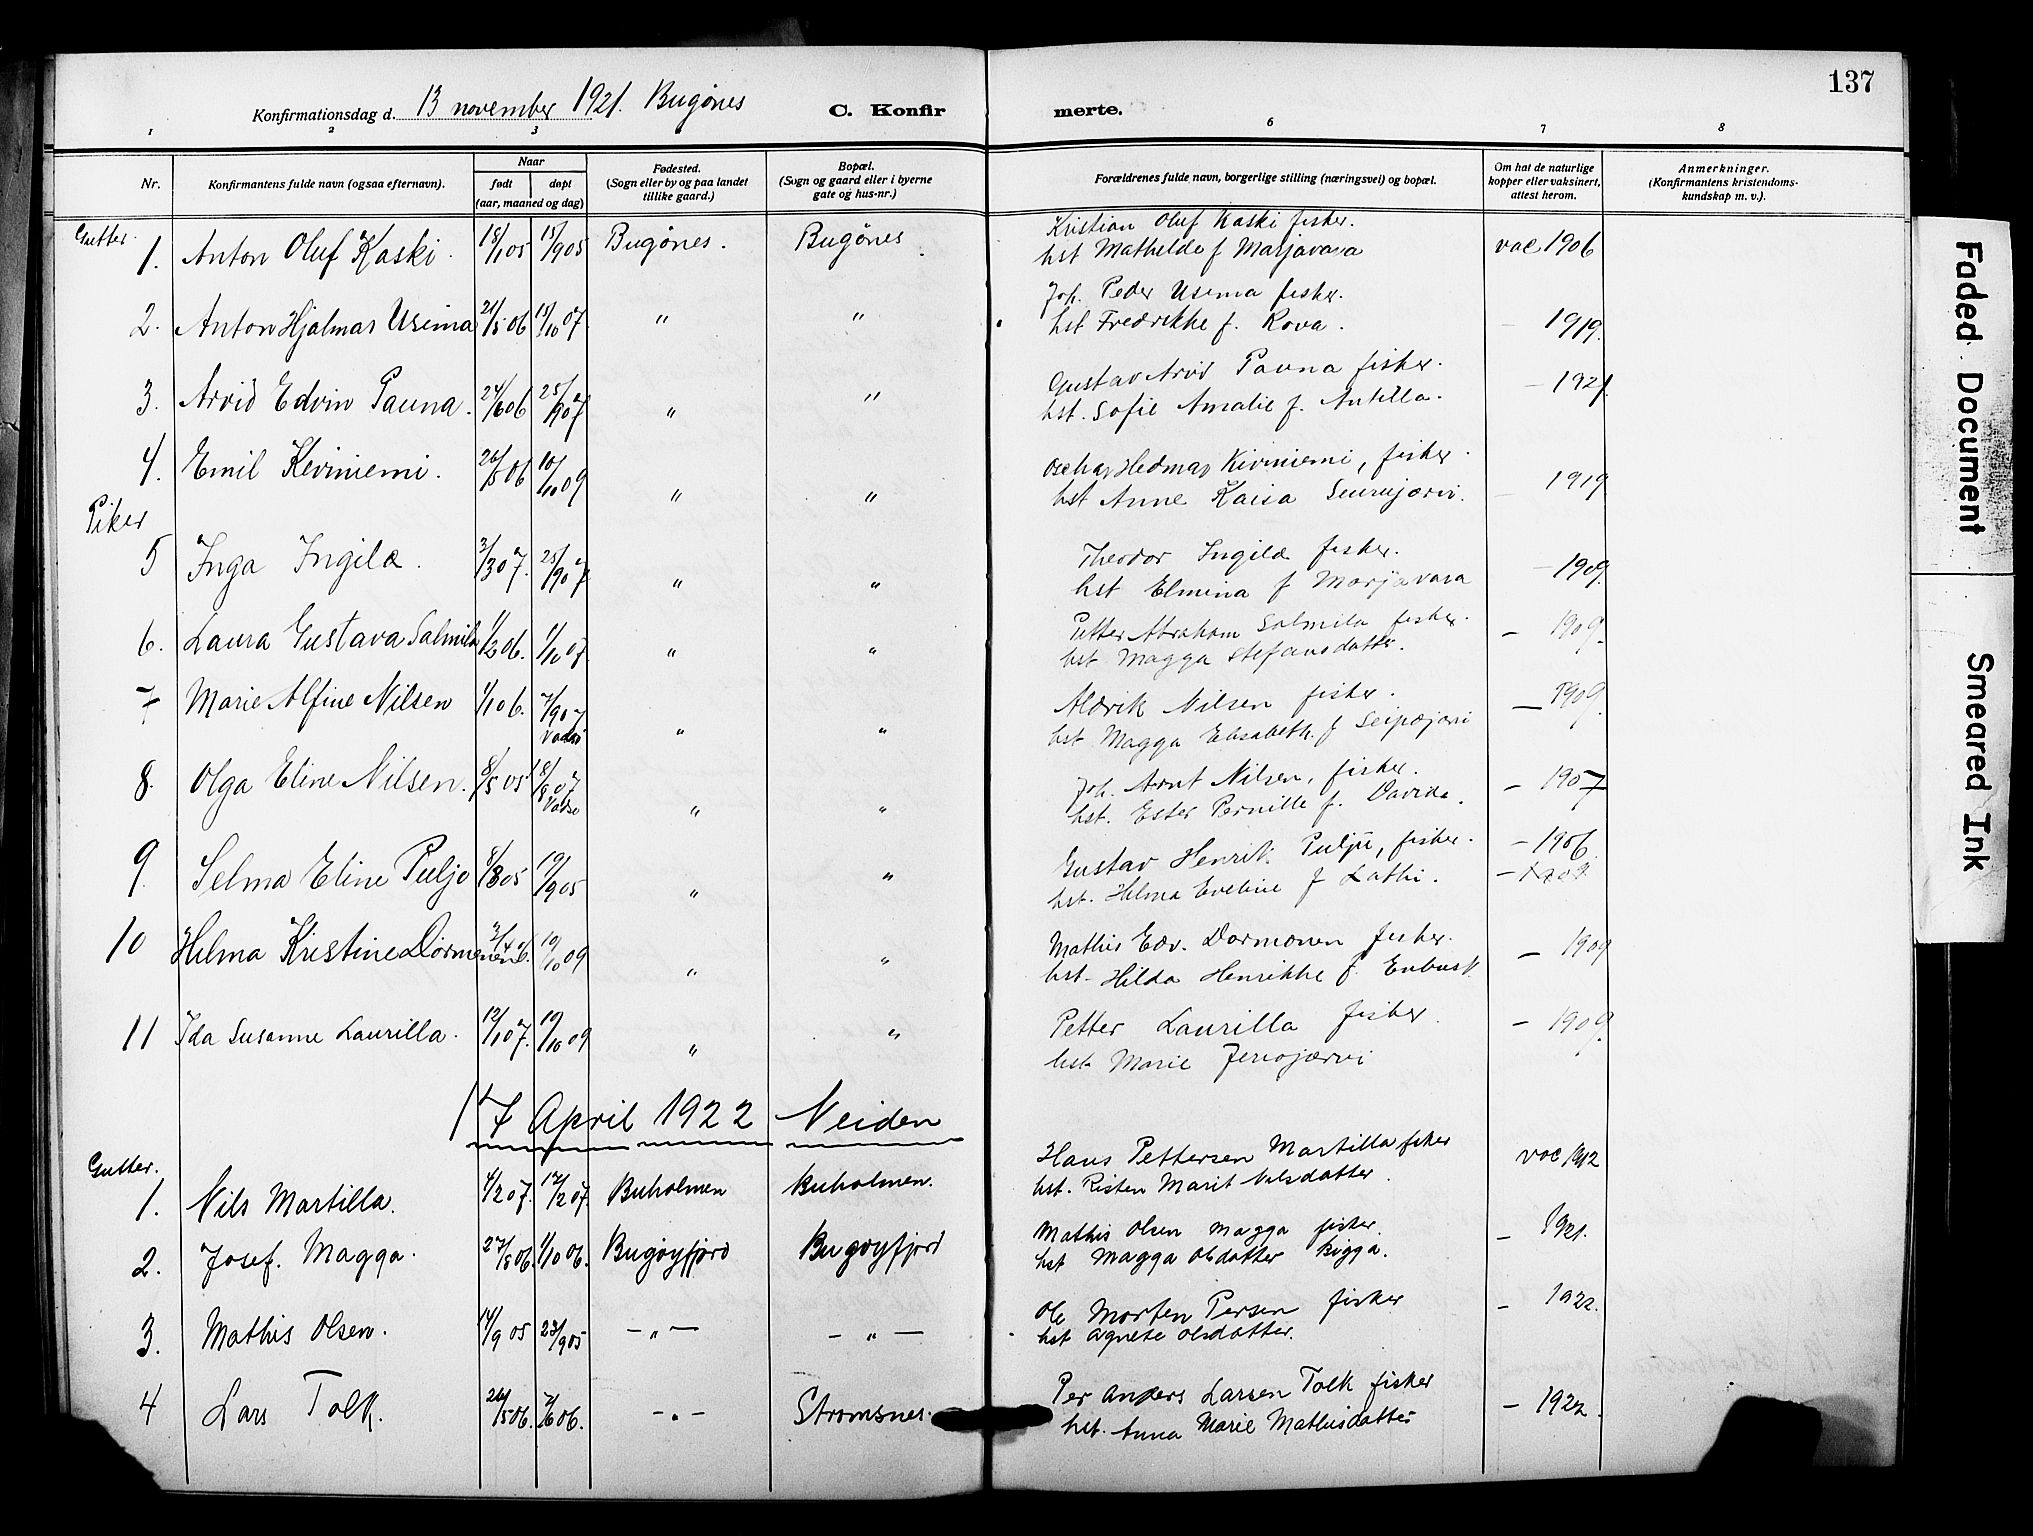 137
Konfirmationsdag d. 13 november 1921. Bugönes C. Konfirmerte.
1 2 3 6 7 8
Nr. Konfirmantens fulde navn (ogsaa efternavn). Naar født døpt (aar, maaned og dag) Fødested. (Sogn eller by og paa landet tillike gaard.) Bopæl. (Sogn og gaard eller i byerne gate og hus-nr.) Forældrenes fulde navn, borgerlige stilling (næringsvei) og bopæl. Om hat de naturlige kopper eller vaksinert, attest herom. Anmerkninger. (Konfirmantens kristendoms-kundskap m. v.).
Gutter.
1. Anton Oluf Kaski. 18/1 05 15/9 05 Bugönes. Bugönes. Kristian Oluf Kaski fisker.
hst Mathelde f Marjavara vac 1906
2. Anton Hjalmar Usima 21/5 06 13/10 07 " " Joh. Peder Usima fisker.
hst Fredrikke f. Rova. - 1919.
3. Arvid Edvin Pauna. 24/6 06 25/9 07 " " Gustav Arvid Pauna fisker.
hst. Sofie Amalie f. Antilla. - 1921.
4. Emil Keviniemi. 26/5 06 10/10 09 " " Oschar Hedmar Kiviniemi, fisker.
hst Anne Kaisa - 1919
Piker
5 Inga Ingilæ. 3/3 07. 25/9 07 " " Theodor Ingilæ fisker.
hst Elmina f Marjavara - 1909.
6. Laura Gustava Salmila 1/2 06. 1/10 07 " " Petter Abraham Salmila fisker.
hst. Magga Stefansdatter. - 1909.
7 Marie Alfine Nilsen 1/1 06. 7/9 07 Vadsö " " Aldrik Nilsen fisker.
hst Magga Elisabeth f Seipæjærvi - 1909.
8. Olga Eline Nilsen. 8/5 05 8/8 07 Vadsö " " Joh. Arnt Nilsen, fisker.
hst. Ester Pernille f. Davida. - 1907
9. Selma Eline Puljo 8/8 05 19/9 05 " " Gustav Henrik Puljü, fisker. - 1906
hst. Hilma Eveline f Lathi. - 1909
10 Hilma Kristine Dörmenen 3/4 06. 10/10 09 " " Mathis Edv. Dormænen fisker.
hst. Hilda Henrikke f. Enbusk - 1909
11 Ida Susanne Laurilla. 12/1 07. 10/10 09 " " Petter Laurilla fisker.
hst. Marie Jenojærvi - 1909.
17 April 1922 Neiden
Gutter.
1. Nils Martilla. 4/2 07. 12/2 07. Buholmen Buholmen. Hans Pettersen Martilla fisker
hst. Risten Marit Nilsdatter. vac 1912
2. Josef. Magga. 27/8 06. 1/10 06. Bugöyfjord Bugöyfjord Mathis Olsen Magga fisker.
hst Magga Olsdatter Rigga. - 1921.
3. Mathis Olsen. 14/9 05 23/9 05 - " - - " - Ole Morten Persen fisker
hst Agnete Olsdatter. - 1922.
4 Lars Tolk. 26/5 06. 7/6 06. - " - Strömsnes. Per Anders Larsen Tolk fisker
hst. Anna Marie Mathisdatter - 1922.
Faded Document
Smeared Ink